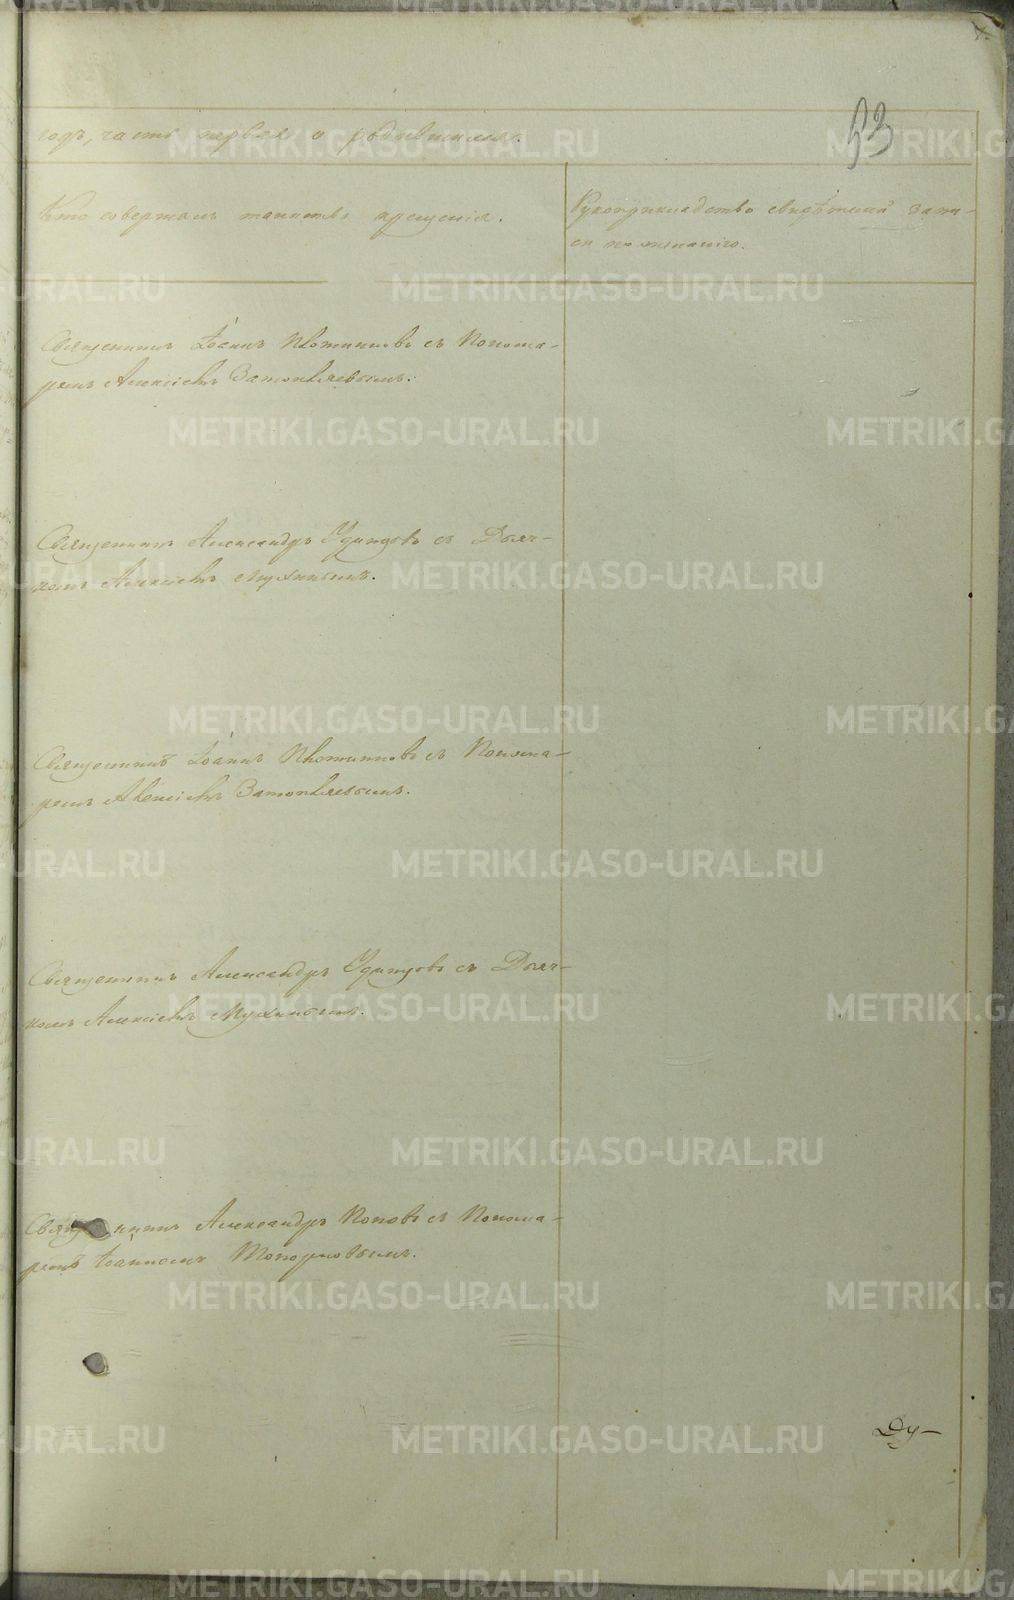 годъ, часть первая о родившихся.
93
Кто совершалъ таинство крещенія.
Рукоприкладство свидѣтелей запи-
си по желанію.
Священникъ Іоаннъ Плотниковъ съ Понома-
ремъ Алексіемъ Затопляевымъ.
Священникъ Александръ Удинцовъ съ Дьяч-
комъ Алексіемъ Мухинымъ.
Священникъ Іоаннъ Плотниковъ съ Понома-
ремъ Алексіемъ Затопляевымъ.
Священникъ Александръ Удинцовъ съ Дьяч-
комъ Алексіемъ Мухинымъ.
Священникъ Александръ Поповъ съ Понома-
ремъ Іоанномъ Топорковымъ.
Ду-
METRIKI.GASO-URAL.RU